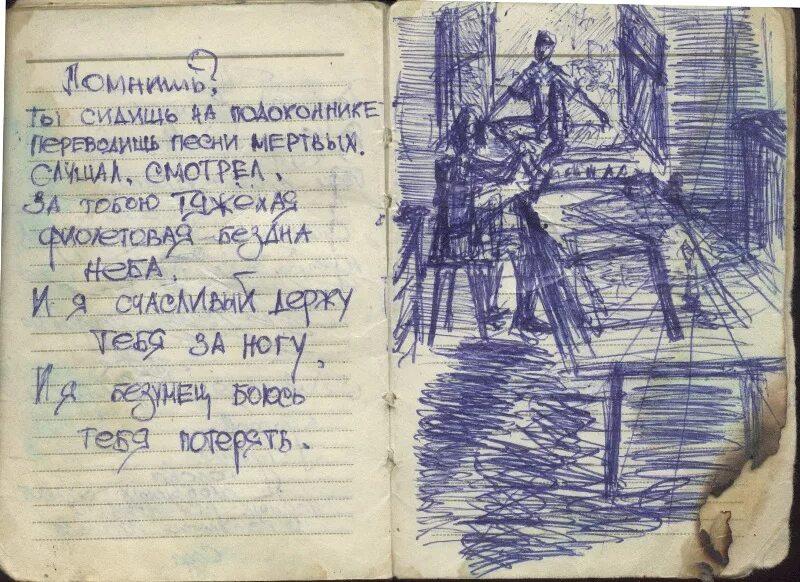 Помнишь?
ты сидишь на подоконнике
переводишь песни мертвых.
Слушал, смотрел.
За тобою тяжёлая
фиолетовая бездна
неба.
И я счасливый держу
тебя за ногу,
И я безумец боюсь
тебя потерять.